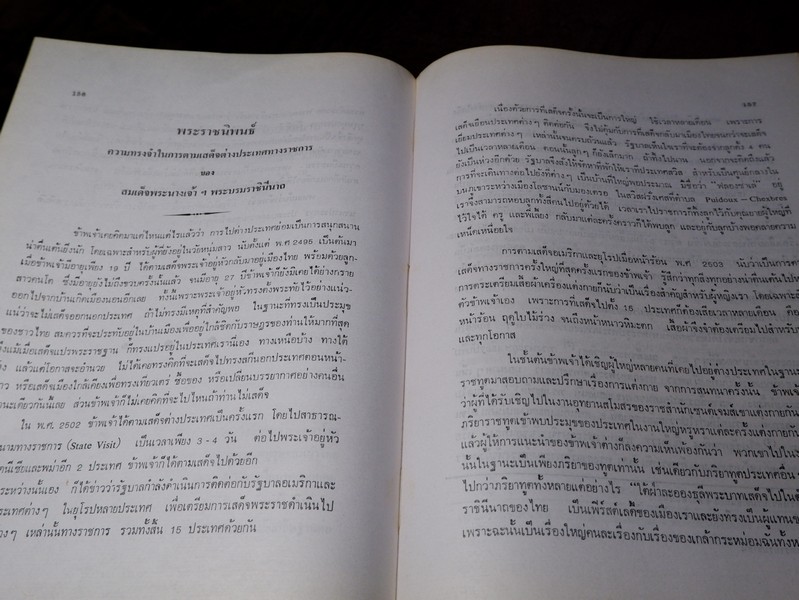 156
พระราชนิพนธ์
ความทรงจำในการตามเสด็จต่างประเทศทางราชการ
ของ
สมเด็จพระนางเจ้า ฯ พระบรมราชินีนาถ
ข้าพเจ้าเคยคิดมาแต่ไหนแต่ไรแล้วว่า การไปต่างประเทศย่อมเป็นการสนุกสนาน
น่าตื่นเต้นยิ่งนัก โดยเฉพาะสำหรับผู้ที่ยังอยู่ในวัยหนุ่มสาว นับตั้งแต่ พ.ศ 2495 เป็นต้นมา
เมื่อข้าพเจ้ามีอายุเพียง 19 ปี ได้ตามเสด็จพระเจ้าอยู่หัวกลับมาอยู่เมืองไทย พร้อมด้วยลูก-
สาวคนโต ซึ่งมีอายุยังไม่ถึงขวบครั้งนั้นแล้ว จนมีอายุ 27 ปีข้าพเจ้าก็ยังมิเคยได้ย่างกราย
ออกไปจากบ้านเกิดเมืองนอนอีกเลย ทั้งนี้เพราะพระเจ้าอยู่หัวทรงตั้งพระทัยไว้อย่างแน่ว-
แน่ว่าจะไม่เสด็จออกนอกประเทศ ถ้าไม่ทรงมีเหตุที่สำคัญพอ ในฐานะที่ทรงเป็นประมุข
ของชาวไทย สมควรที่จะประทับอยู่ในบ้านเมืองเพื่ออยู่ใกล้ชิดกับราษฎรของท่านให้มากที่สุด
ถึงแม้เมื่อเสด็จแปรพระราชฐาน ก็ทรงแปรอยู่ในประเทศเรานี่เอง ทางเหนือบ้าง ทางใต้
แล้วแต่โอกาสจะอำนวย ไม่ได้เคยทรงคิดที่จะเสด็จไปทรงสกีนอกประเทศตอนหน้า-
หรือเสด็จเมืองใกล้เคียงเพื่อทรงเที่ยวเตร่ ซื้อของ หรือเปลี่ยนบรรยากาศอย่างคนอื่น
ฐานะเดียวกันนี้เลย ส่วนข้าพเจ้าก็ไม่เคยคิดที่จะไปไหนถ้าท่านไม่เสด็จ
ใน พ.ศ. 2502 ข้าพเจ้าได้ตามเสด็จต่างประเทศเป็นครั้งแรก โดยไปสาธารณ-
นามทางราชการ (State Visit) เป็นเวลาเพียง 3 - 4 วัน ต่อไปพระเจ้าอยู่หัว
และพม่าอีก 2 ประเทศ ข้าพเจ้าก็ได้ตามเสด็จไปด้วยอีก
ระหว่างนั้นเอง ก็ได้ข่าวว่ารัฐบาลกำลังดำเนินการติดต่อกับรัฐบาลอเมริกาและ
ประเทศต่างๆ ในยุโรปหลายประเทศ เพื่อเตรียมการเสด็จพระราชดำเนินไป
เหล่านั้นทางราชการ รวมทั้งสิ้น 15 ประเทศด้วยกัน
157
เนื่องด้วยการที่เสด็จครั้งนั้นจะเป็นการใหญ่ ใช้เวลาหลายเดือน เพราะการ
เสด็จเยือนประเทศต่าง ๆ ติดต่อกัน จึงไม่คุ้มกับการที่เสด็จกลับมาเมืองไทยจนกว่าจะเสด็จ
เยี่ยมประเทศต่าง ๆ เหล่านั้นจนครบถ้วนแล้ว รัฐบาลเห็นใจเราที่จะต้องจากลูกตั้ง 4 คน
ไปเป็นเวลาหลายเดือน ตอนนั้นลูกๆ ก็ยังเล็กมาก
ในสวิสฝรั่งเศสที่ตำบล Puidoux — Chexbres
เราจึงสามารถหอบลูกทั้งสี่คนไปอยู่ด้วยได้
การตามเสด็จอเมริกาและยุโรปเมื่อหน้าร้อน พ.ศ 2503 นับว่าเป็นการตาม
เสด็จทางราชการครั้งใหญ่ที่สุดครั้งแรกของข้าพเจ้า รู้สึกว่าทุกสิ่งทุกอย่างน่าตื่นเต้นไปหมด
การตระเตรียมเสื้อผ้าเครื่องแต่งกายก็นับว่าเป็นเรื่องสำคัญสำหรับผู้หญิงเรา โดยเฉพาะ
ตัวข้าพเจ้าเอง เพราะการที่เสด็จไปตั้ง 15 ประเทศก็ต้องเสียเวลาหลายเดือน
หน้าร้อน ฤดูใบไม้ร่วง จนถึงหน้าหนาวหิมะตก เสื้อผ้าจึงจำต้องเตรียมไปสำหรับ
และทุกโอกาส
ในชั้นต้นข้าพเจ้าได้เชิญผู้ใหญ่หลายคนที่เคยไปอยู่ต่างประเทศในฐานะ
ราชทูตมาสอบถามและปรึกษาเรื่องการแต่งกาย จากการสนทนาครั้งนั้น
ว่าผู้ที่ได้รับเชิญไปในงานอุทยานสโมสรของราชสำนักเซนต์เจมส์เขาแต่งกายกัน
ภริยาราชทูตเข้าพบประมุขของประเทศในงานใหญ่หรูหราแต่ละครั้งแต่งกาย
แล้วผู้ให้การแนะนำของข้าพเจ้าต่างก็ลงความเห็นพ้องกันว่า พวกเขาไปใน
นั้นในฐานะเป็นเพียงภริยาของทูตเท่านั้น เช่นเดียวกับภริยาทูตประเทศอื่น
ไปกว่าภริยาทูตทั้งหลายแต่อย่างไร "ใต้ฝ่าละอองธุลีพระบาทเสด็จไปใน
ราชินีนาถของไทย เป็นเฟิร์สต์เลดี้ของเมืองเราและยังทรงเป็นผู้แทน
เพราะฉะนั้นเป็นเรื่องใหญ่คนละเรื่องกับเรื่องของเกล้ากระหม่อมฉันทั้ง